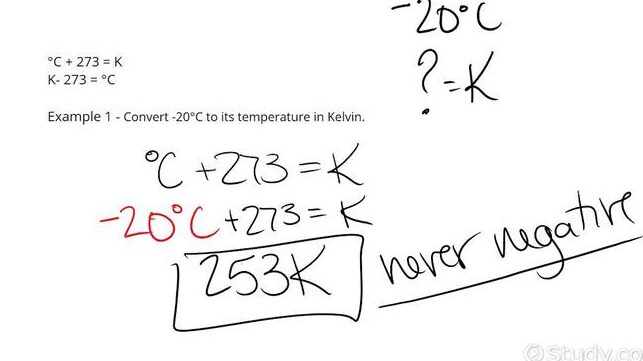 -20°C
? = K
°C + 273 = K
K- 273 = °C
Example 1 - Convert -20°C to its temperature in Kelvin.
°C +273 = K
-20°C +273 = K
253K
never negative
Study.co